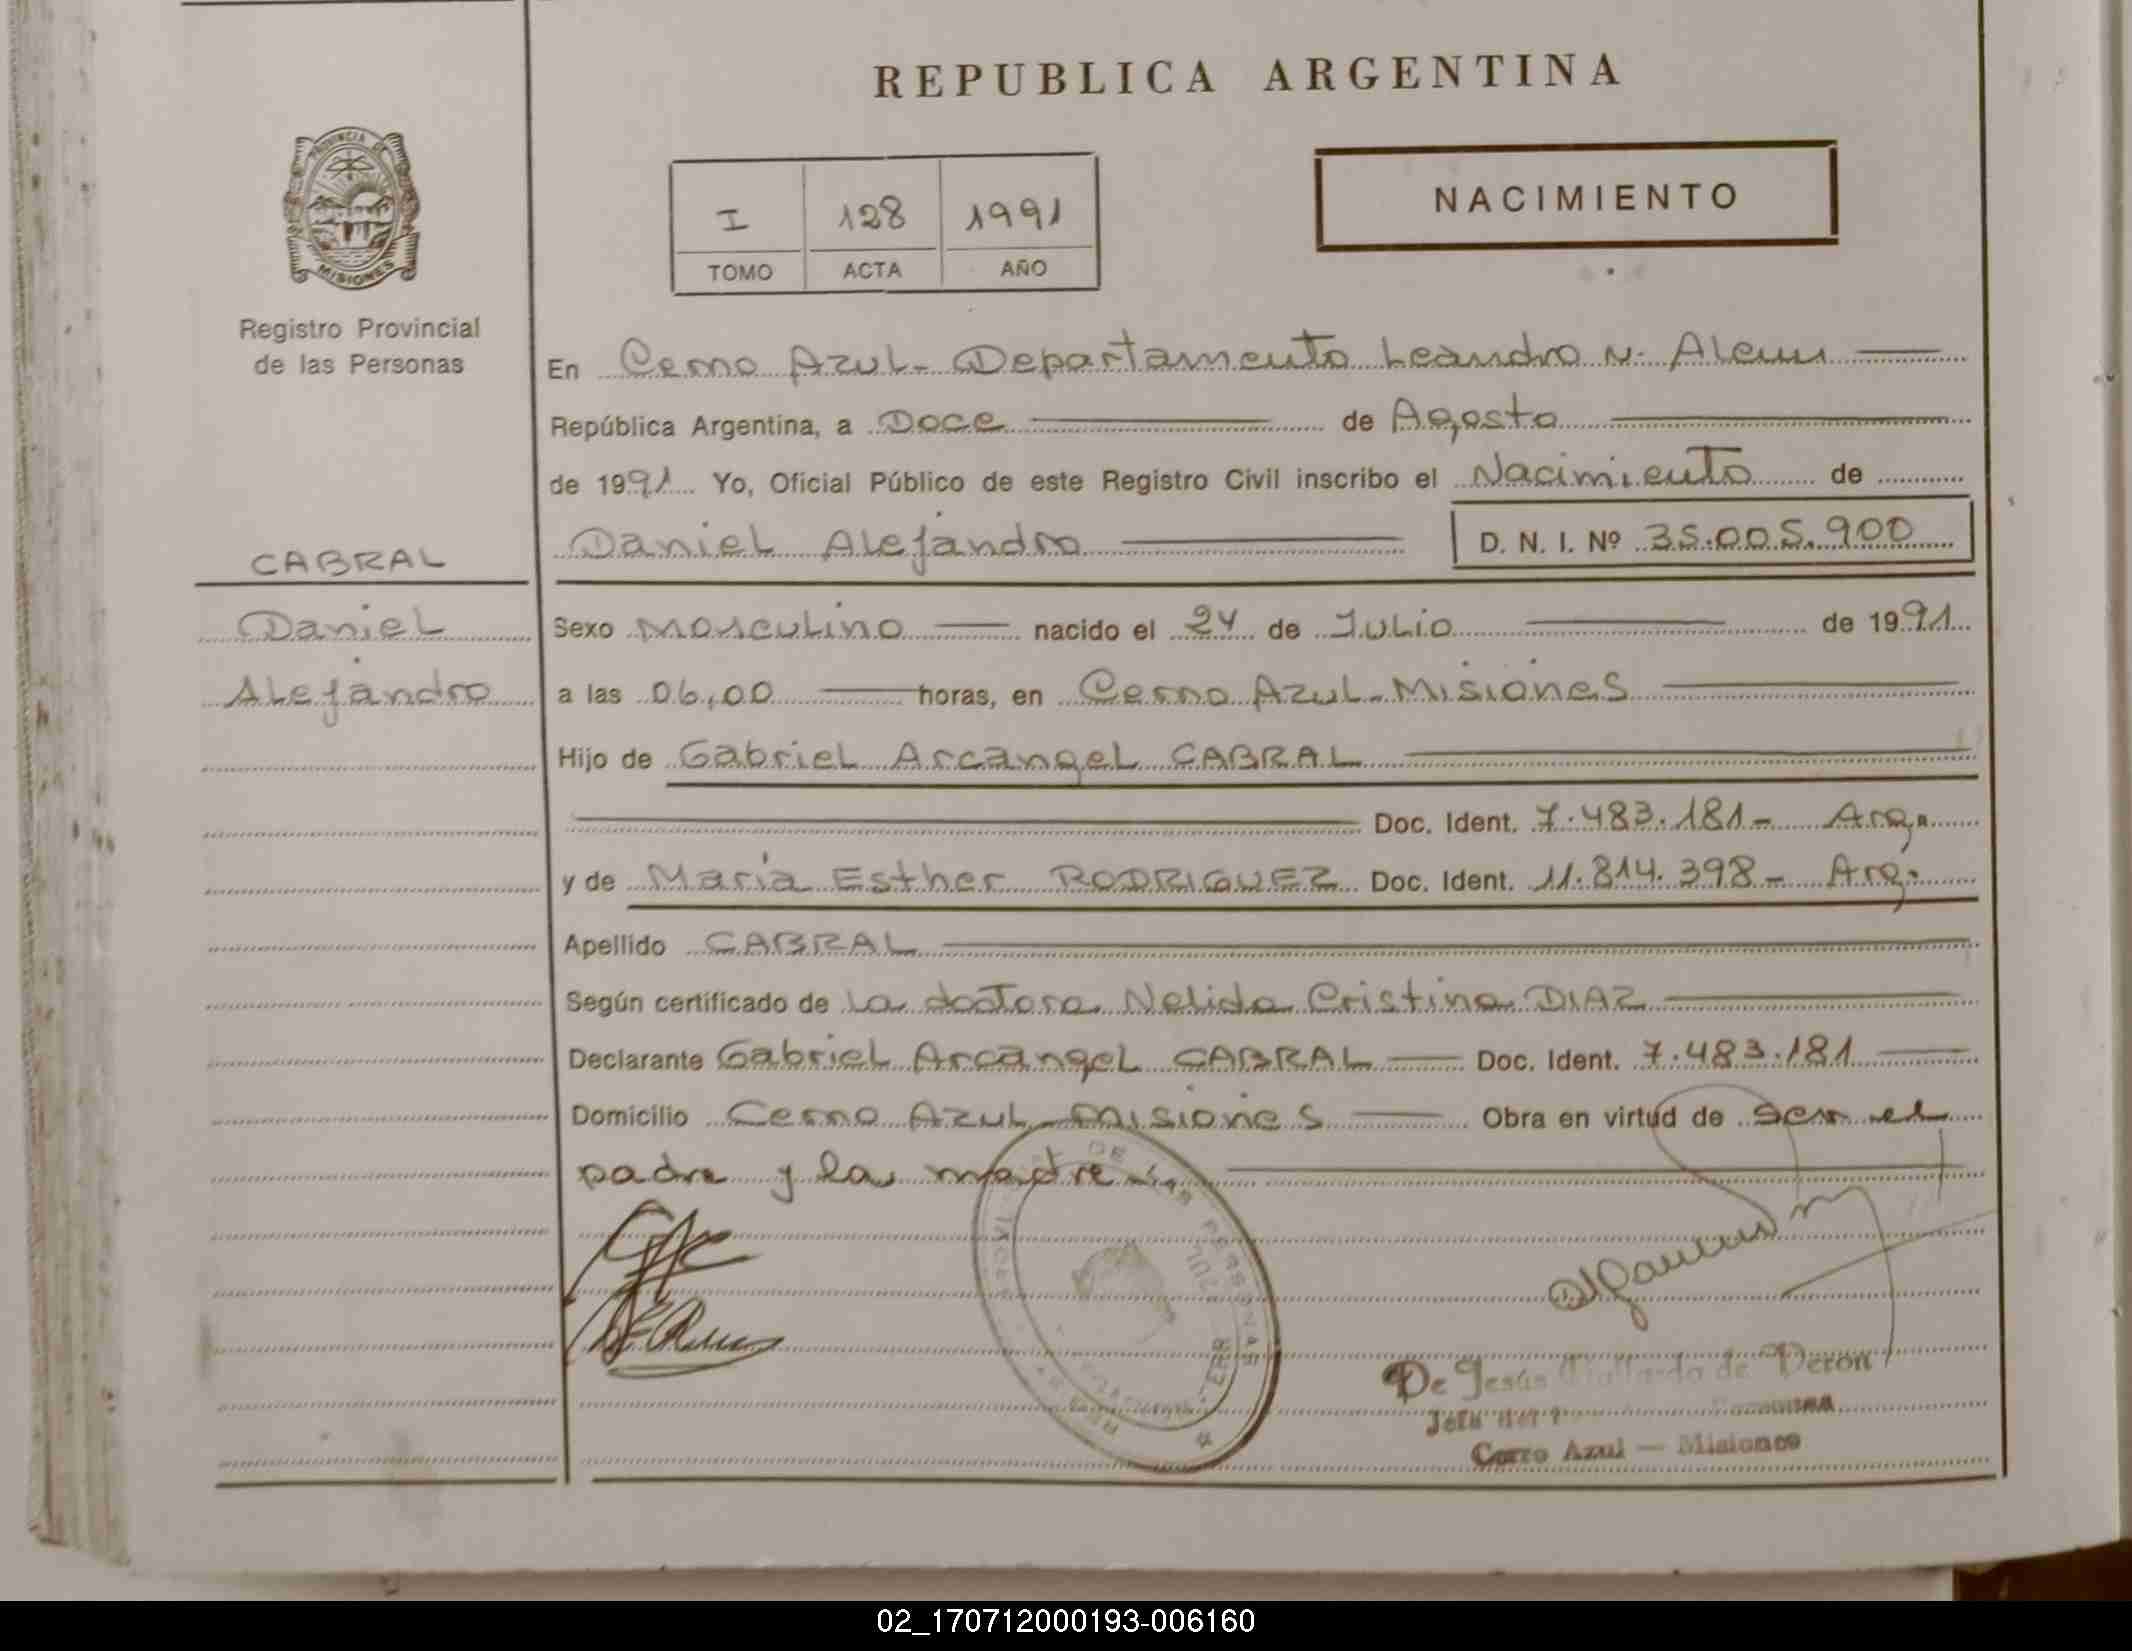 REPUBLICA ARGENTINA
PROVINCIA DE
MISIONES
Registro Provincial
de las Personas
I 128 1991
TOMO ACTA AÑO
NACIMIENTO
En Cerro Azul - Departamento Leandro N. Alem
República Argentina, a Doce de Agosto
de 1991 Yo, Oficial Público de este Registro Civil inscribo el Nacimiento de
Daniel Alejandro D. N. I. Nº 35.005.900
CABRAL
Daniel
Alejandro
Sexo Masculino nacido el 24 de Julio de 1991
a las 06,00 horas, en Cerro Azul - Misiones
Hijo de Gabriel Arcangel CABRAL
Doc. Ident. 7.483.181 - Arg.
y de Maria Esther RODRIGUEZ Doc. Ident. 11.814.398 - Arg.
Apellido CABRAL
Según certificado de la doctora Nelida Cristina DIAZ
Declarante Gabriel Arcangel CABRAL Doc. Ident. 7.483.181
Domicilio Cerro Azul - Misiones Obra en virtud de Ser el
padre y la madre
De Jesús Gallardo de Verón
Cerro Azul — Misiones
02_170712000193-006160